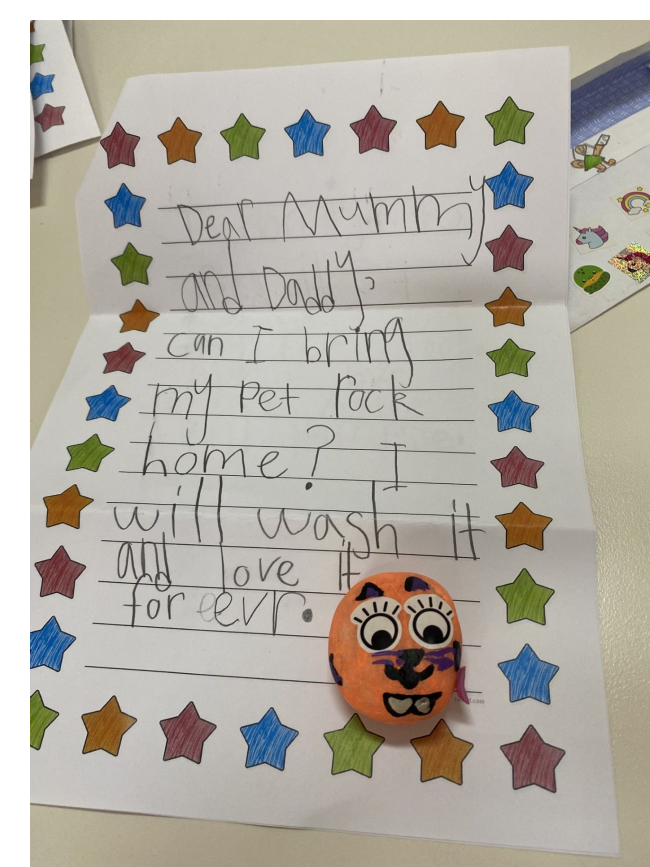 Dear Mummy
and Daddy,
can I bring
my Pet rock
home? I
will wash it
and love it
for eevr.